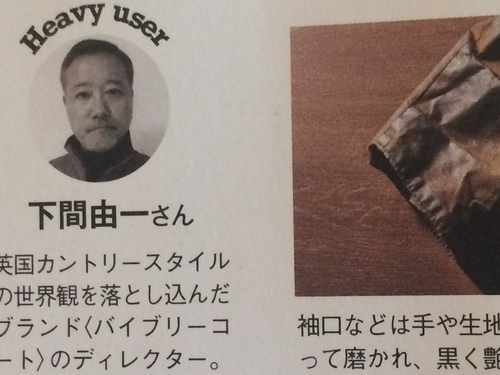 Heavy user
下間由一さん
英国カントリースタイル
の世界観を落とし込んだ
ブランド〈バイブリーコ
ート〉のディレクター。
袖口などは手や生地
って磨かれ、黒く艶